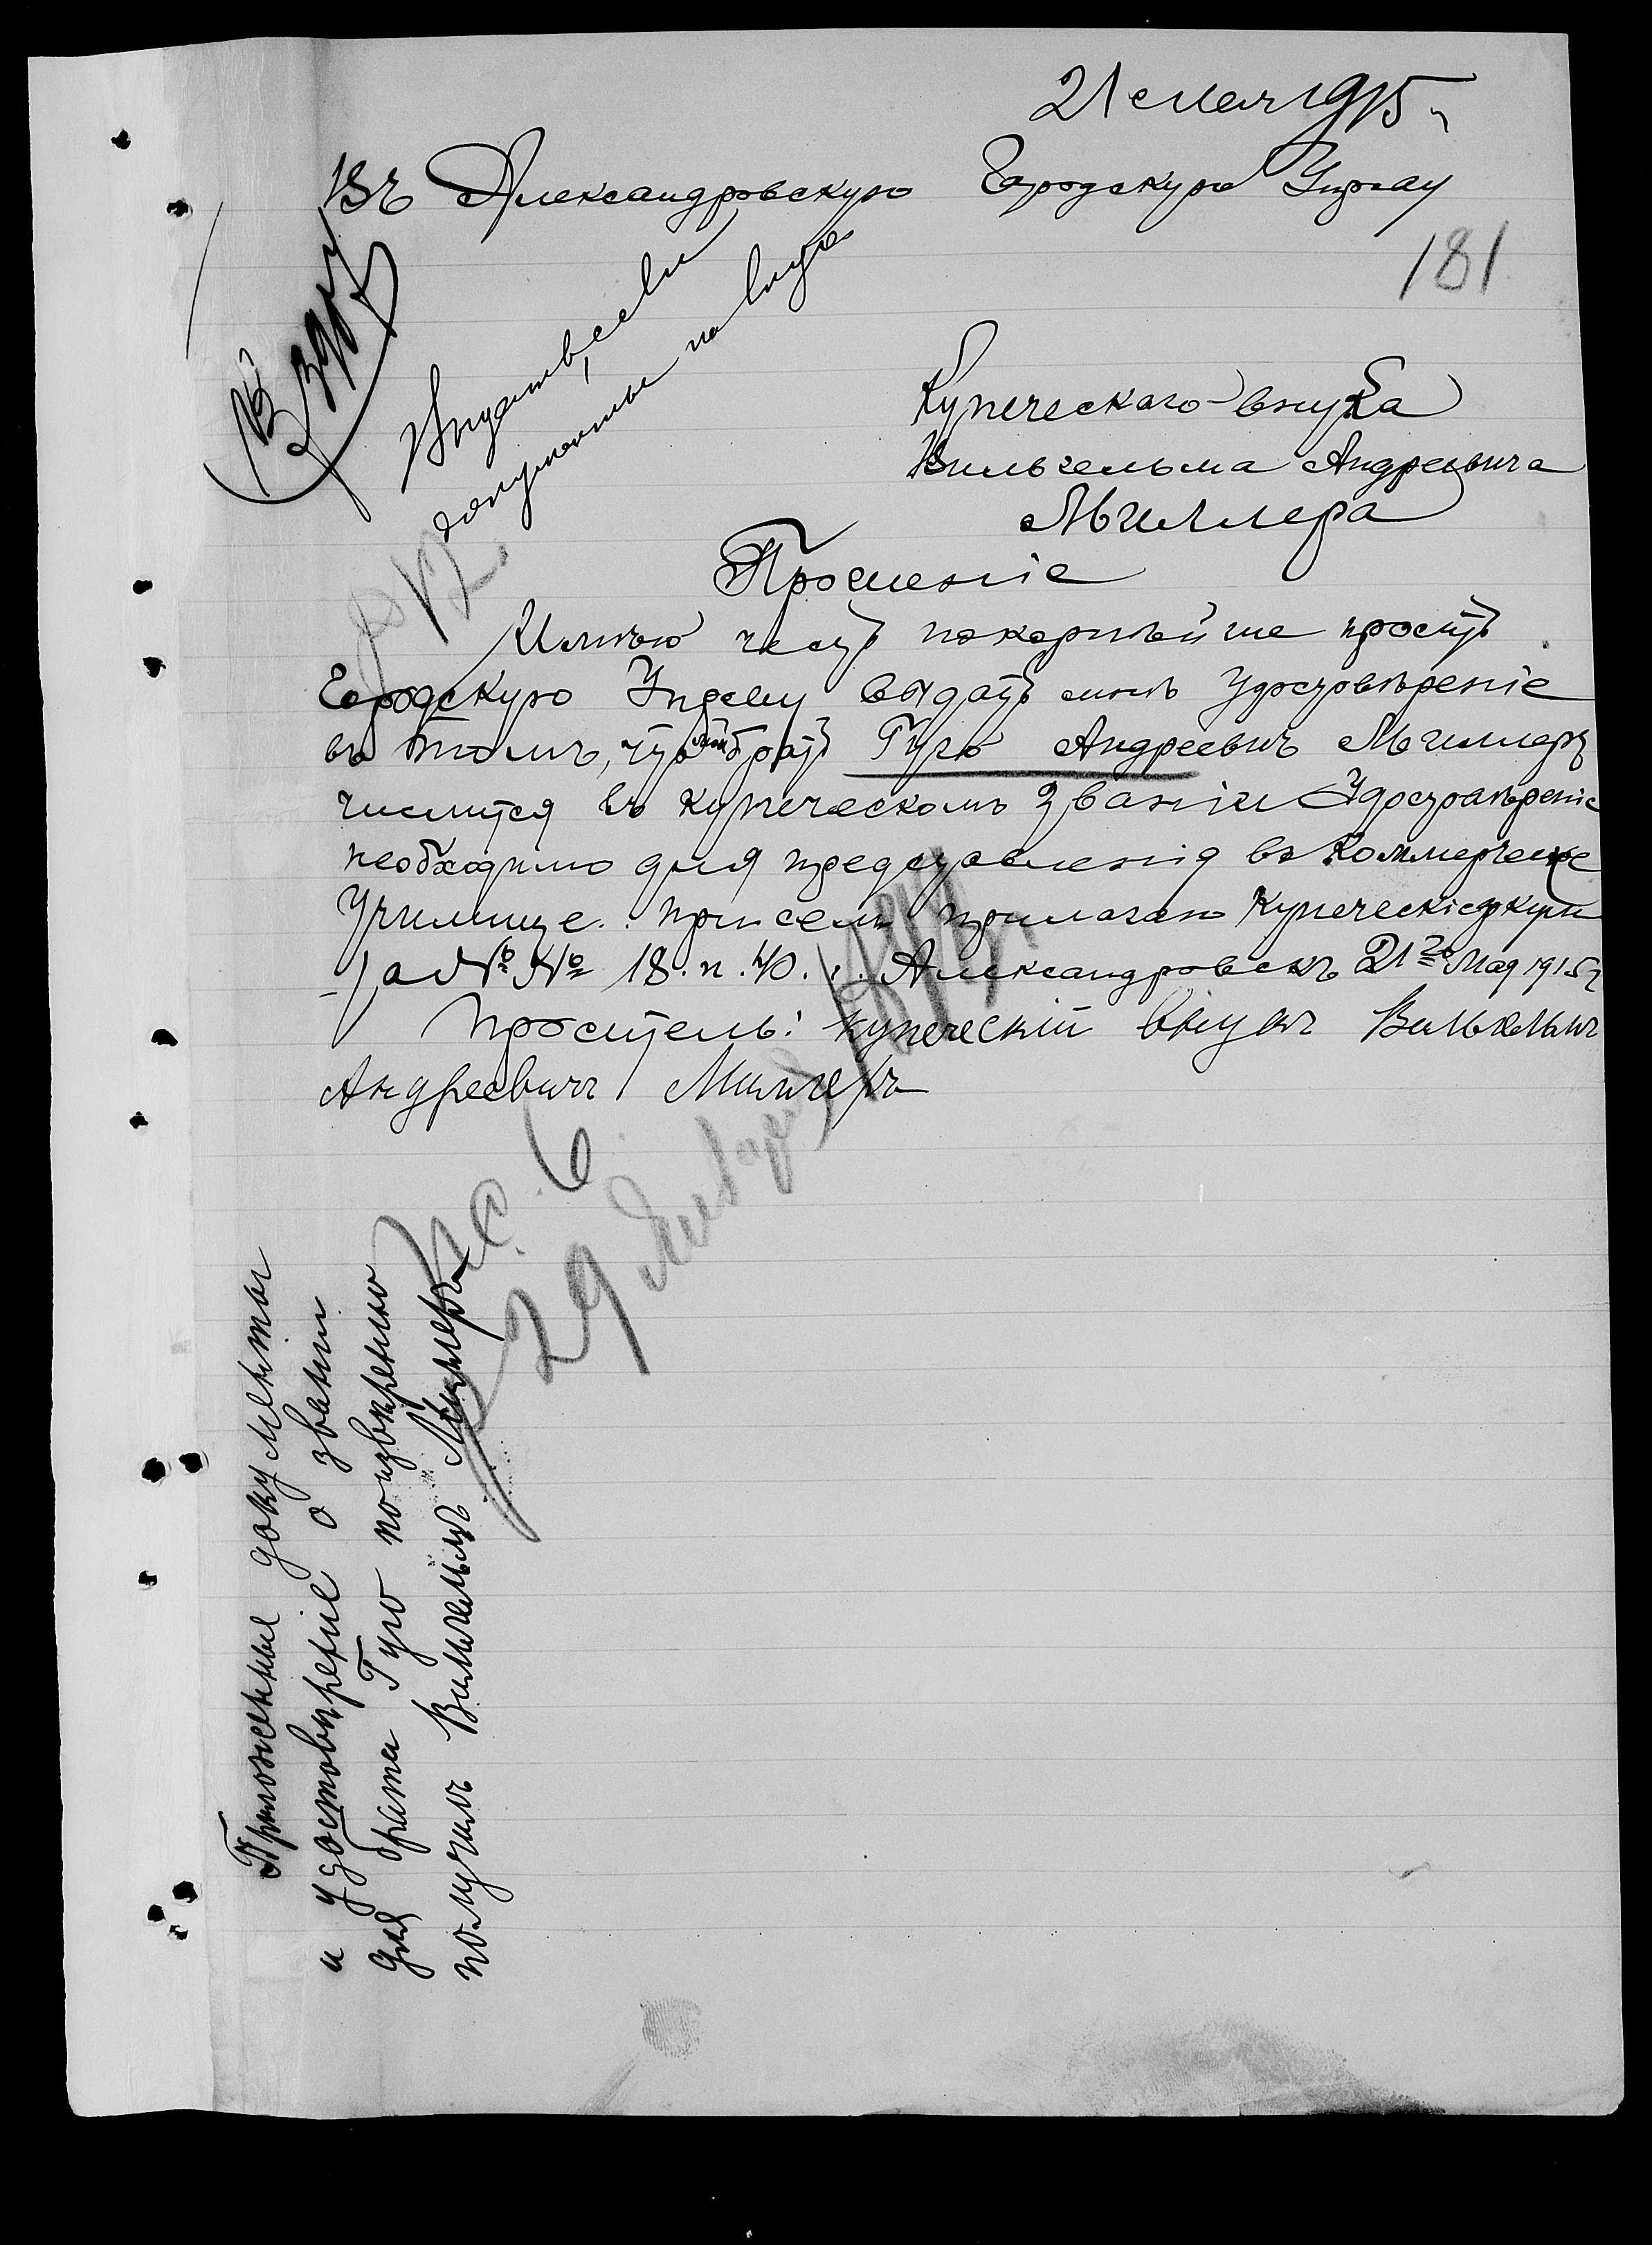 21 мая 1915 г
Въ Александровскую Городскую Управу
181
Выдать, если
документы на лицо
Купеческаго внука
Вильгельма Андреевича
Миллера
Прошеніе
Имѣю честь покорнѣйше просить
Городскую Управу выдать мнѣ удостовѣреніе
въ томъ, что мой братъ Гуго Андреевичъ Миллеръ
числится въ купеческомъ званіи Удостовѣреніе
необходимо для представленія въ Коммерческое
Училище. При семъ прилагаю купеческіе
за №№ 18. и 40. Александровскъ 21го Мая 1915 г
Проситель: купеческій внукъ Вильгельмъ
Андреевичъ Миллеръ
6
29 Января
Приложенные документы
и удостовѣреніе о званіи
для брата Гуго по
получилъ Вильгельмъ Миллеръ